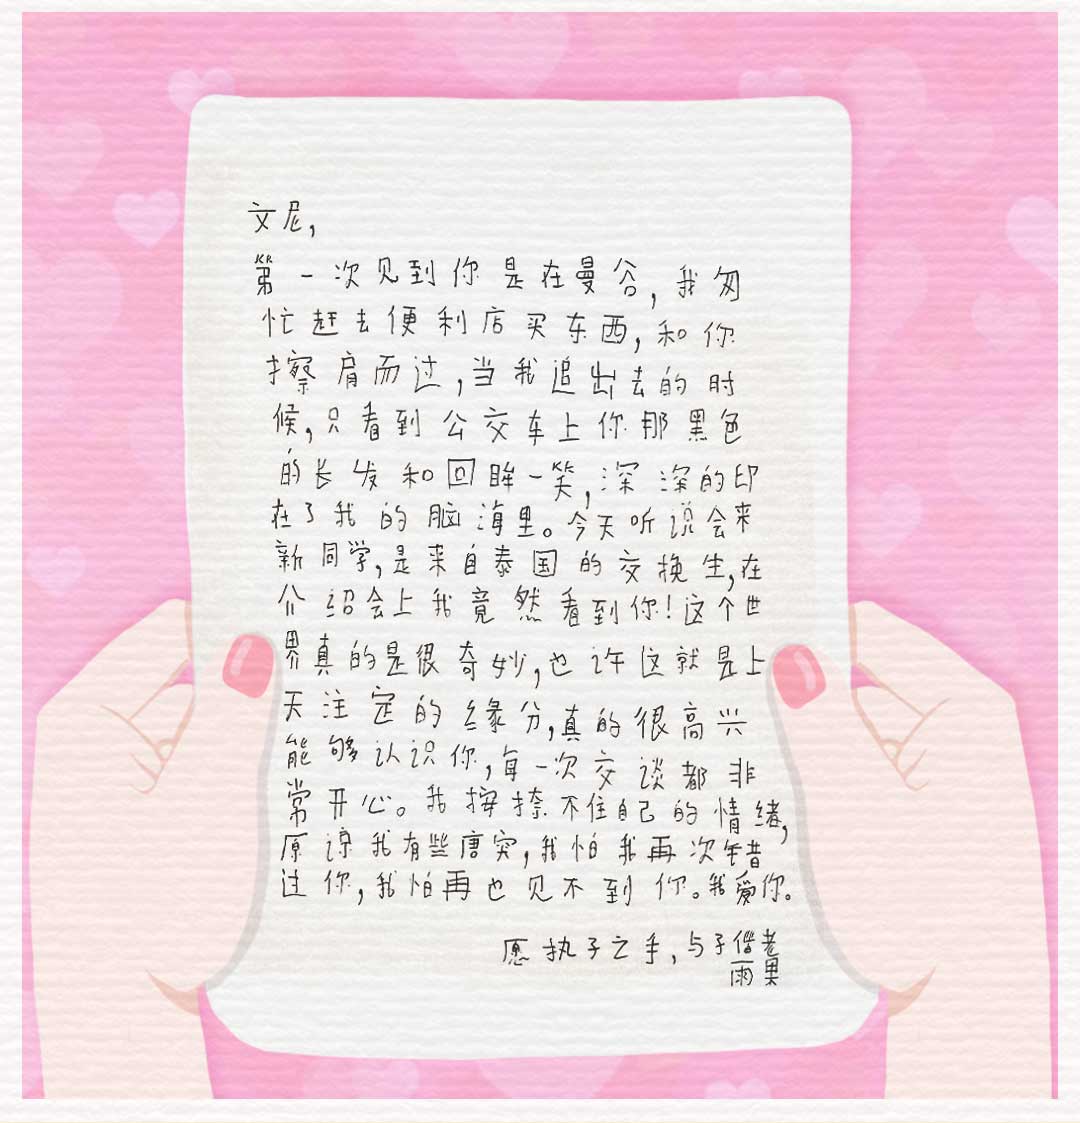 文尼,
第一次见到你是在曼谷,我匆
忙赶去便利店买东西,和你
擦肩而过,当我追出去的时
候,只看到公交车上你那黑色
的长发和回眸一笑,深深的印
在了我的脑海里。今天听说会来
新同学,是来自泰国的交换生,在
介绍会上我竟然看到你!这个世
界真的是很奇妙,也许这就是上
天注定的缘分,真的很高兴
能够认识你,每一次交谈都非
常开心。我按捺不住自己的情绪,
原谅我有些唐突,我怕我再次错
过你,我怕再也见不到你。我爱你。
愿执子之手,与子偕老
雨果